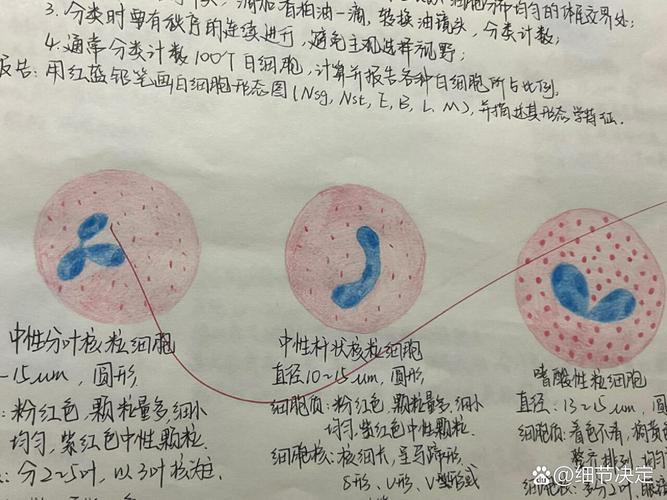 3. 分类时要有秩序的连续进行，避免主观选择视野；
4. 通常分类计数100个白细胞，计算并报告各种白细胞所占比例.
报告：用红蓝铅笔画白细胞形态图(Nsg, Nst, E, B, L, M)，并描述其形态学特征.
中性分叶核粒细胞
-15μm，圆形.
：粉红色，颗粒量多，细小
均匀，紫红色中性颗粒.
：分2~5叶，以3叶核为主.
中性杆状核粒细胞
直径10~15μm，圆形
细胞质：粉红色，颗粒量多，细小
均匀，紫红色中性颗粒.
细胞核：核细长，呈马蹄形
S形、U形、V型形或
嗜酸性粒细胞
直径：13~15μm，圆
细胞质：着色不清，
整齐排列，均匀
细胞核：多分2叶，眼镜
@细节决定